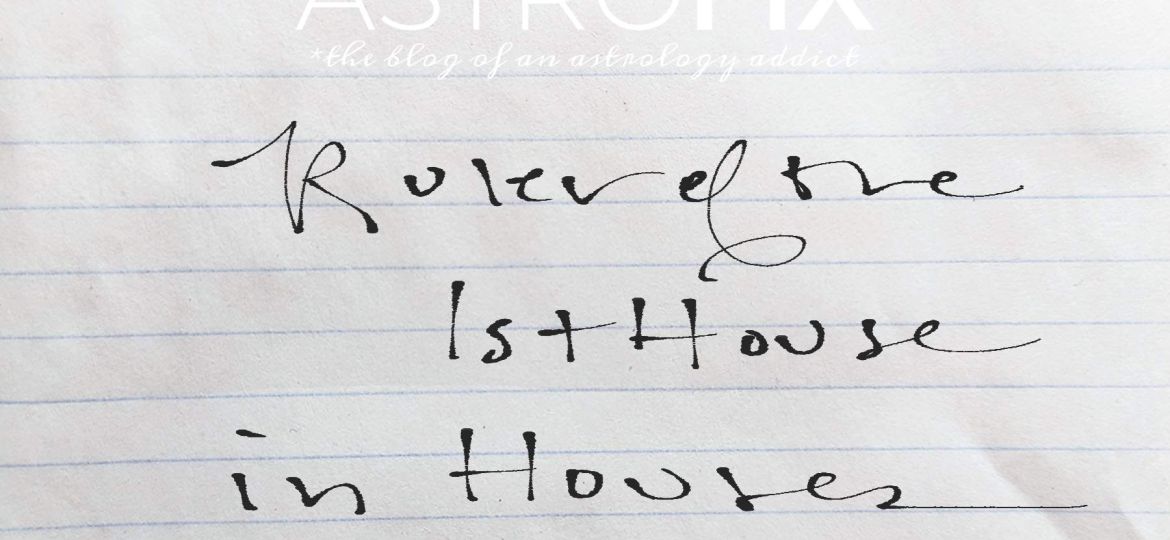 ASTROFIX
*the blog of an astrology addict
Ruler of the
1st House
in Houses